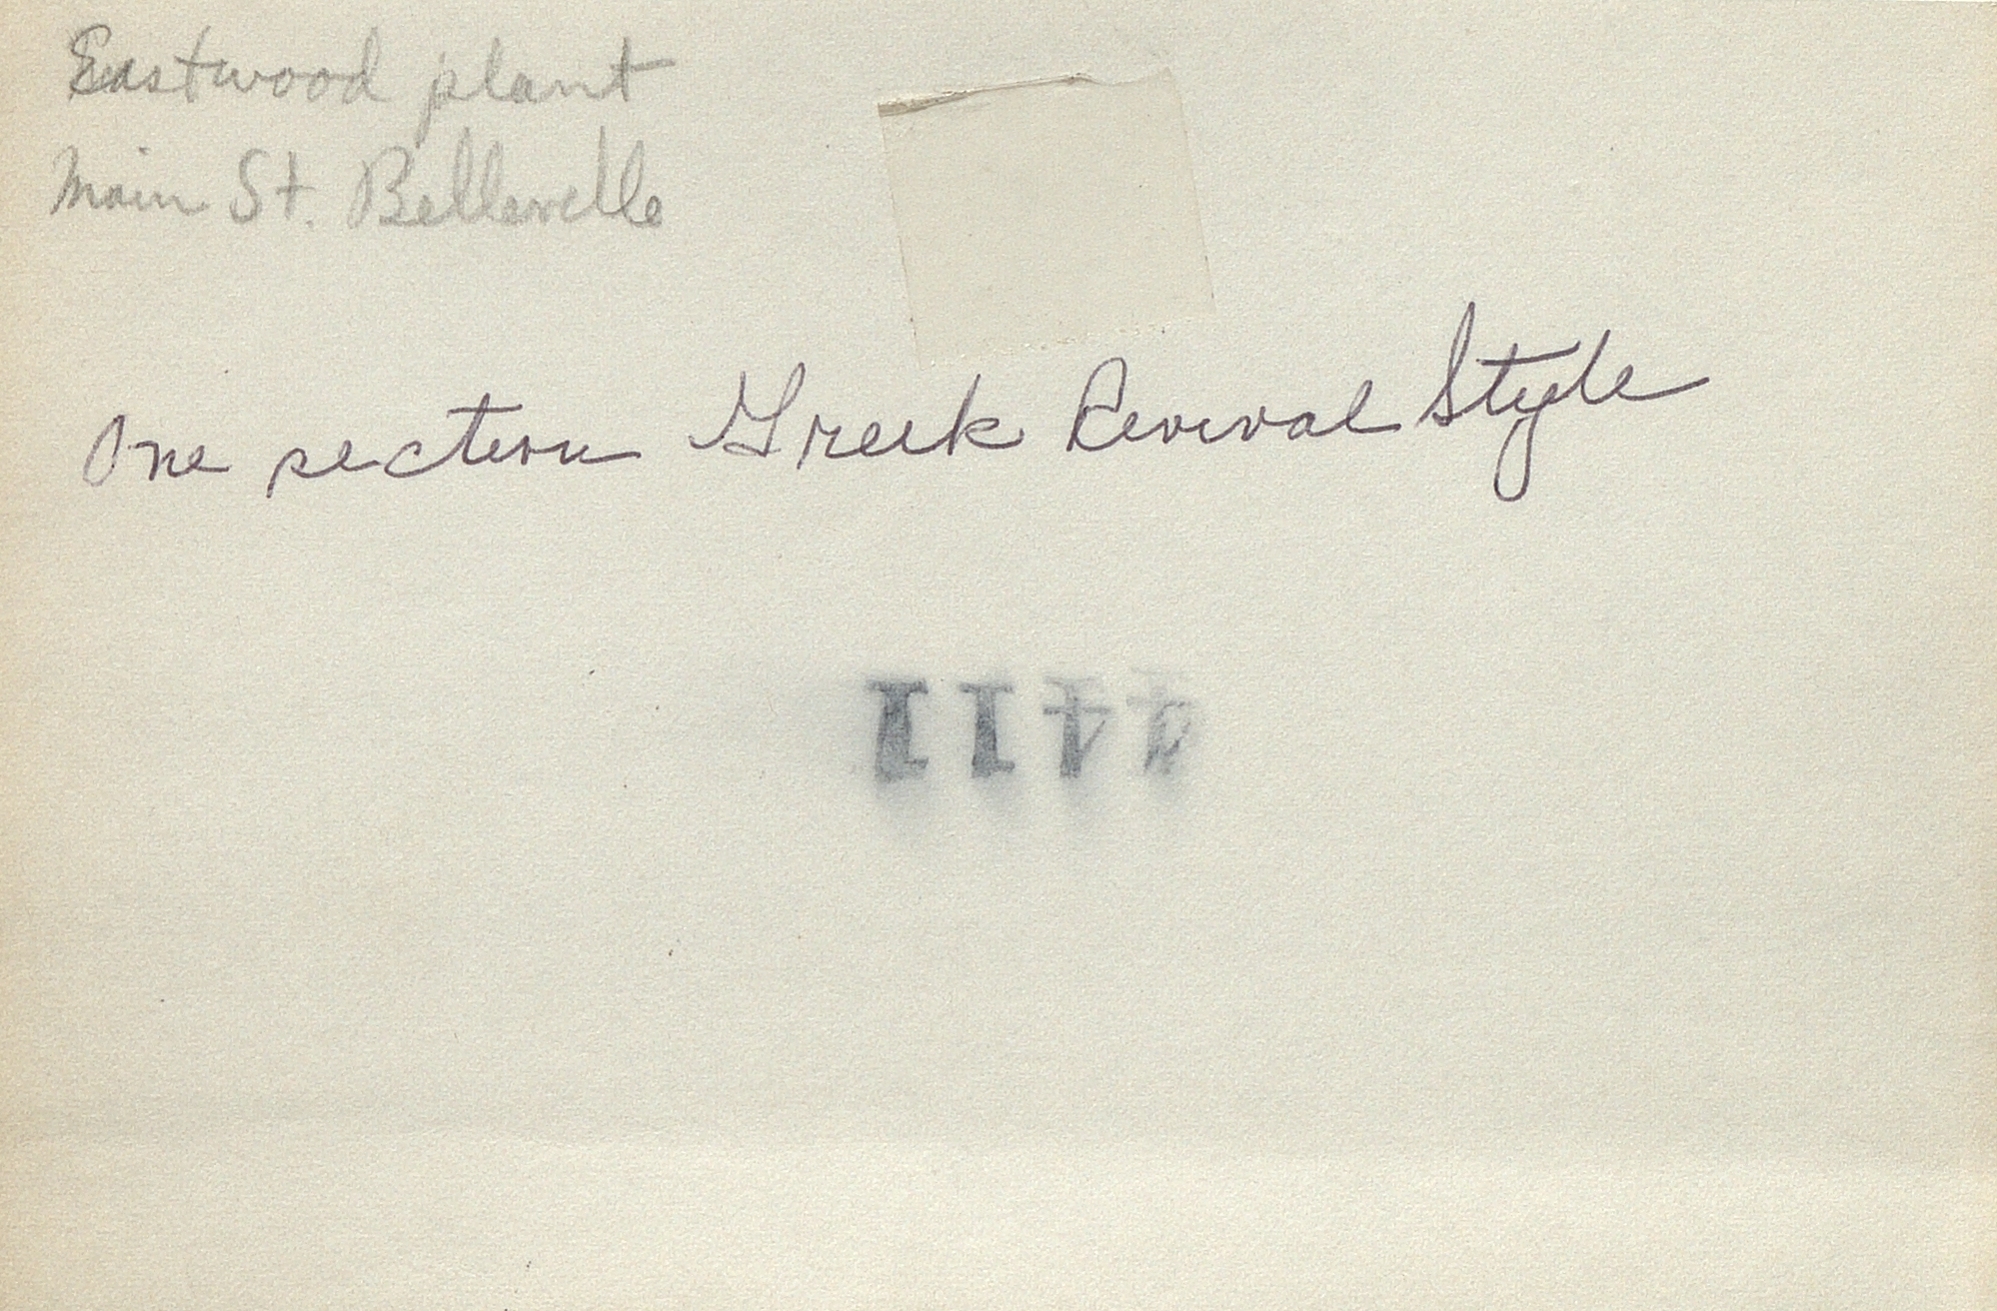 Eastwood plant
Main St. Belleville
One section Greek Revival Style
4411